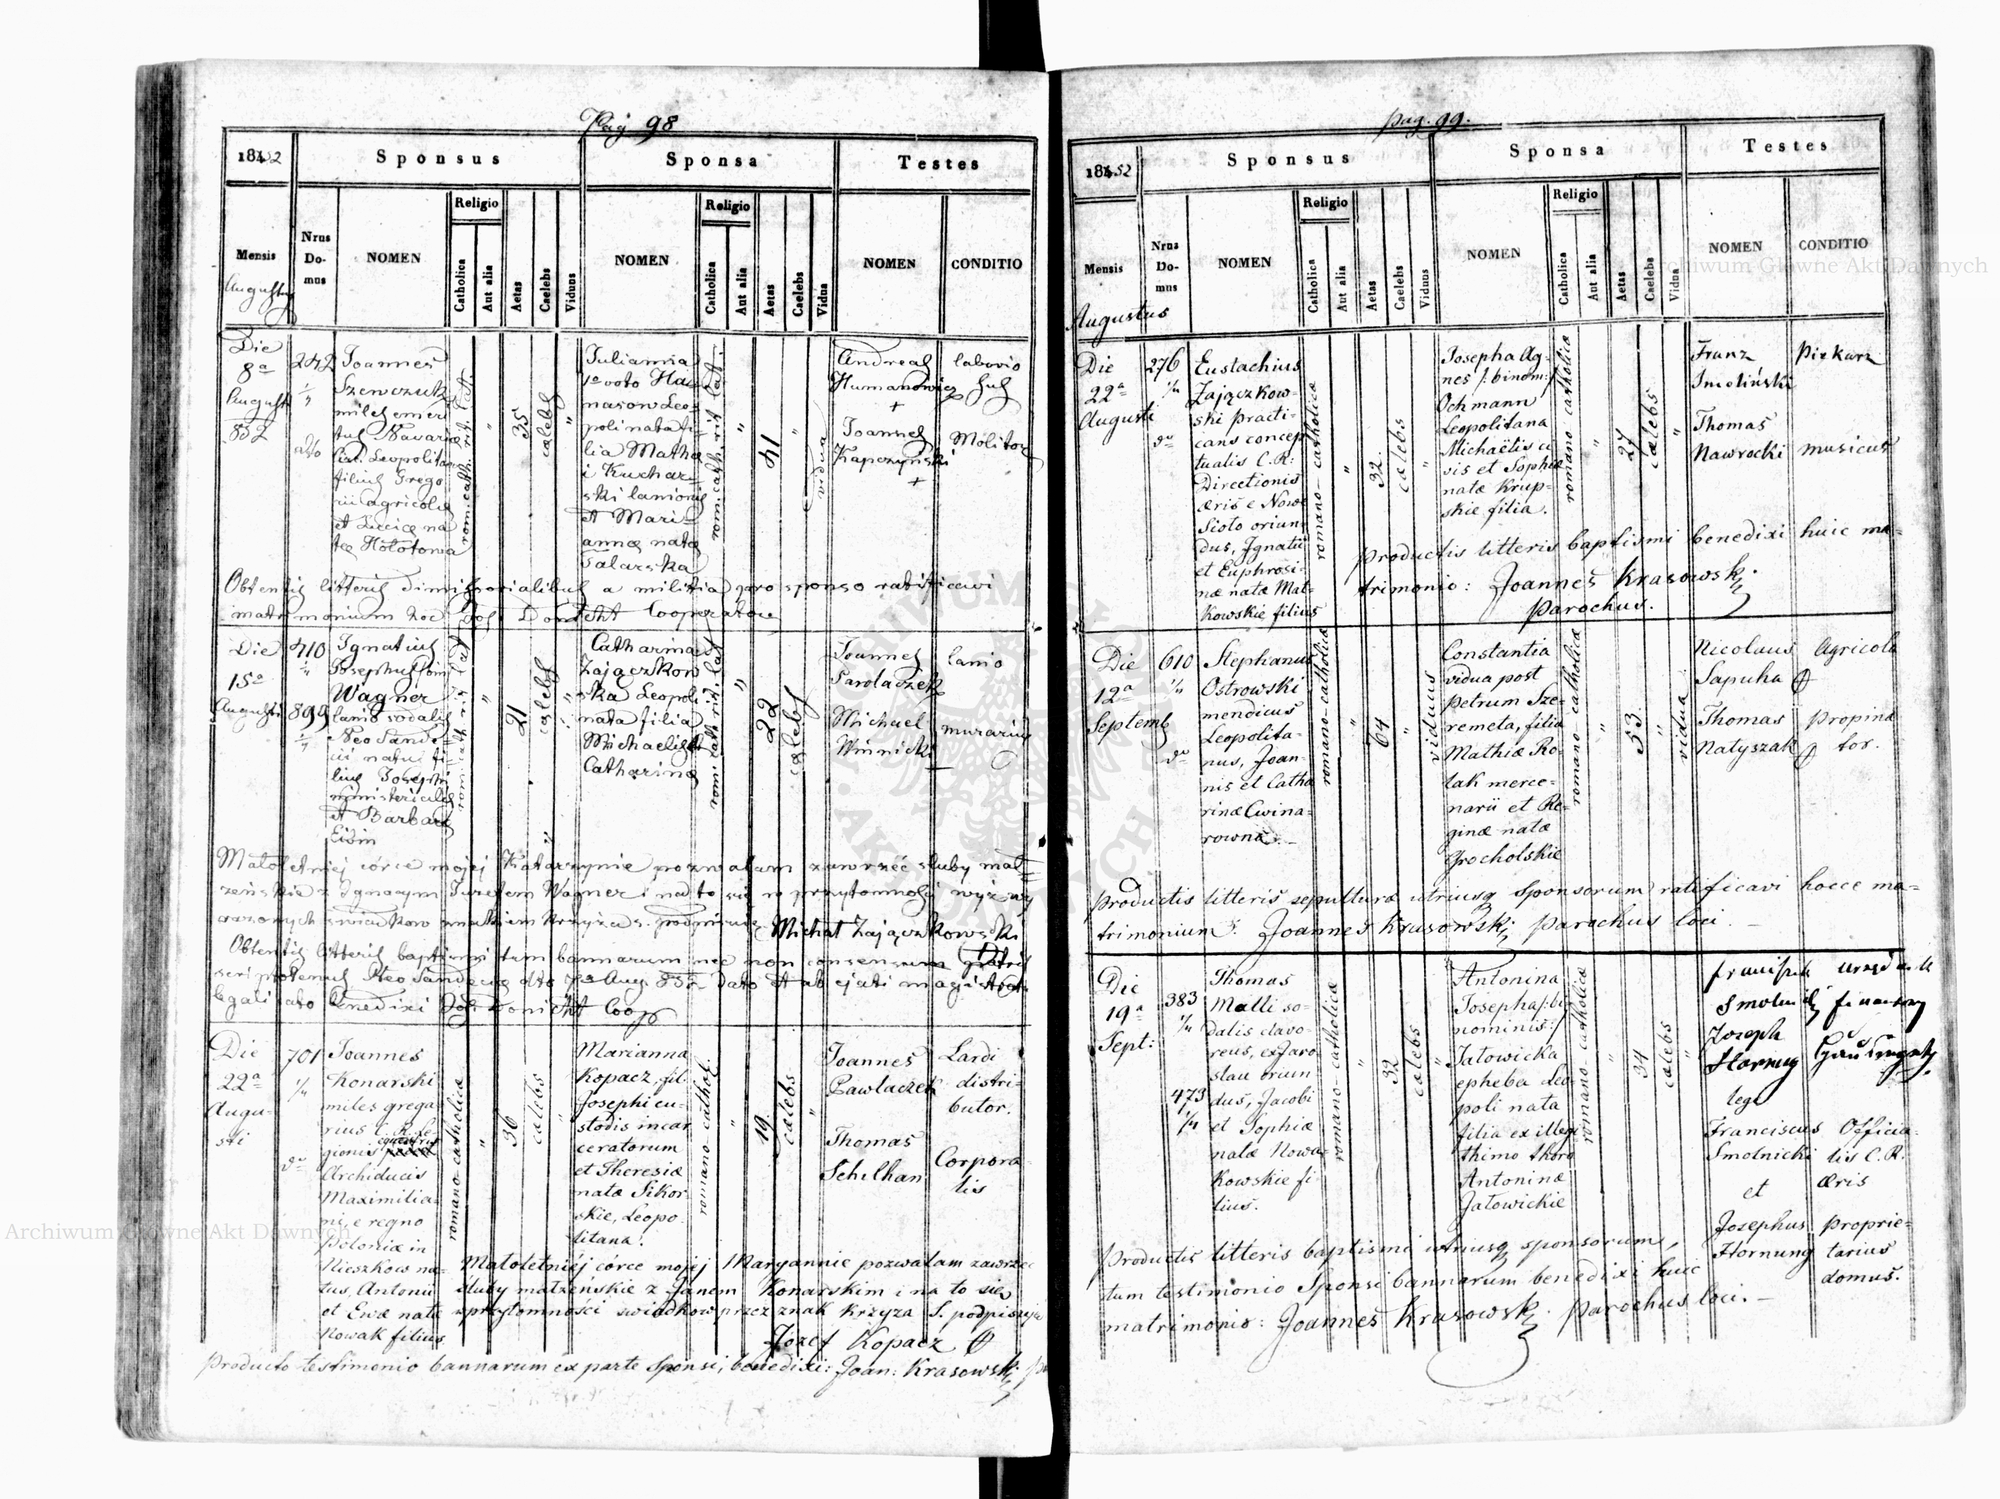 Pag 98
1852
Sponsus
Sponsa
Testes
Mensis
Nrus
Do-
mus
NOMEN
Religio
Catholica
Aut alia
Aetas
Caelebs
Viduus
NOMEN
Religio
Catholica
Aut alia
Aetas
Caelebs
Vidua
NOMEN
CONDITIO
Augustus
Die
8a
Augusti
852
242
1/4
dto
Joannes
Szewczuk
miles emeri
tus Navariæ
Cir. Leopolitan
filius Grego
rii agricolæ
et Luciæ na
tæ Hołotowa
rom. cath. rit. lat.
"
35
cælebs
"
Julianna
1o voto Ha
nasow Leo
poli nata fi
lia Mathæ
i Kuchar
ski lanionis
et Mari
annæ natæ
Talarska
rom. cath. rit. lat.
"
41
"
vidua
Andreas
Humanowicz
+
Joannes
Kapczyński
+
laborio
sus
Molitor
Obtentis litteris dimissorialibus a militia pro sponso ratificavi
matrimonium hoc Jos Donicht Cooperator
Die
15a
Augusti
410
1/4
899
1/4
Ignatius
Josephus
Wagner
lanio sodalis
Neo Sande
cii natus fi
lius Josephi
ministerialis
et Barbaræ
rom. cath. rit. lat.
"
21
cælebs
"
Catharina
Zajączkow
ska Leopoli
nata filia
Michaelis et
Catharinæ
rom. cath. rit. lat.
"
22
cælebs
Joannes
Pawlaczek
Michael
Winnicki
lanio
murarius
Małoletniej córce mojej Katarzynie pozwalam zawrzeć śluby mał=
żeńskie z Ignacym Józefem Wagner i na to się w przytomności wyżwy
rażonych świadków znakiem krzyża s. podpisuję Michał Zajączkowski
Obtentis litteris baptismi tum bannorum nec non consensum patris
scripto tenus Neo Sandeciæ dto 7a Aug. 852 dato et ab ejati magistratu
legalisato benedixi Jos Donicht Coop
Die
22a
Augu-
sti
701
1/4
do
Joannes
Konarski
miles grega
rius C. R. Le-
gionis equestris
Archiducis
Maximilia-
ni, e regno
Poloniæ in
Nieszkow na-
tus, Antonii
et Evæ natæ
Nowak filius
romano-catholicæ
"
36
cælebs
"
Marianna
Kopacz, fil.
Josephi cu-
stodis incar
ceratorum
et Theresiæ
natæ Sikor-
skie, Leopo-
litana.
romano-cathol.
"
19
cælebs
"
Joannes
Pawlaczek
Thomas
Schelhan
Lardi
distri-
butor.
Corpora-
lis
Małoletniéj córce mojej Maryannie pozwalam zawrzeć
śluby małżeńskie z Janem Konarskim i na to się
w przytomności świadków przez znak krzyża S. podpisuję
Józef Kopacz
Producto testimonio bannarum ex parte Sponsi, benedixi: Joan: Krasowski
pag. 99.
1852
Sponsus
Sponsa
Testes
Mensis
Nrus
Do-
mus
NOMEN
Religio
Catholica
Aut alia
Aetas
Caelebs
Viduus
NOMEN
Religio
Catholica
Aut alia
Aetas
Caelebs
Vidua
NOMEN
CONDITIO
Augustus
Die
22a
Augusti
276
1/4
do
Eustachius
Zajączkow-
ski practi-
cans concep
tualis C. R.
Directionis
æris e Nowe
Sioło oriun
dus, Ignatii
et Euphrosi-
næ natæ Mat-
kowskie filius
romano-catholica
"
32.
cælebs
"
Josepha Ag-
nes /: binom:/
Ochmann
Leopolitana
Michaëlis ci-
vis et Sophiæ
natæ Krup-
skie filia.
romano catholicæ
"
27
cælebs
"
Franz
Smoliński
Thomas
Nawrocki
Piekarz
musicus
Productis litteris baptismi benedixi huic ma-
trimonio: Joannes Krasowski
Parochus.
Die
12a
Septemb
610
1/4
do
Stephanus
Ostrowski
mendicus
Leopolita-
nus, Joan-
nis et Catha
rinæ Cwina-
rownæ.
romano-catholicæ
"
64
"
viduus
Constantia
vidua post
Petrum Sze-
remeta, filia
Mathiæ Ro-
lak merce-
narii et Re-
ginæ natæ
Grocholskie
romano-catholicæ
"
53.
"
vidua
Nicolaus
Sapuha
Thomas
Natyszak
Agricola
Propina
tor.
Productis litteris sepulturæ utriusq sponsorum ratificavi hocce ma-
trimonium. Joannes Krasowski Parochus loci.
Die
19a
Sept:
383
1/4
473
1/4
Thomas
Malli so-
dalis clavo-
reus, ex Jaro
slau oriun
dus, Jacobi
et Sophiæ
natæ Nowa-
kowskie fi-
lius.
romano-catholicæ
"
32
cælebs
"
Antonina
Josepha /:bi
nominis:/
Jatowicka
epheba Leo
poli nata
filia ex illegi
thimo thoro
Antoninæ
Jatowickie
romano-catholica
"
34
cælebs
"
Franciszek
Smolnicki
Joseph
Hornung
lege
Franciscus
Smolnicki
et
Josephus
Hornung
Officia-
lis C. R.
æris
proprie-
tarius
domus.
Productis litteris baptismi utriusq sponsorum,
tum testimonio Sponsi bannarum benedixi huic
matrimonio: Joannes Krasowski Parochus loci.
Archiwum Główne Akt Dawnych
Archiwum Główne Akt Dawnych